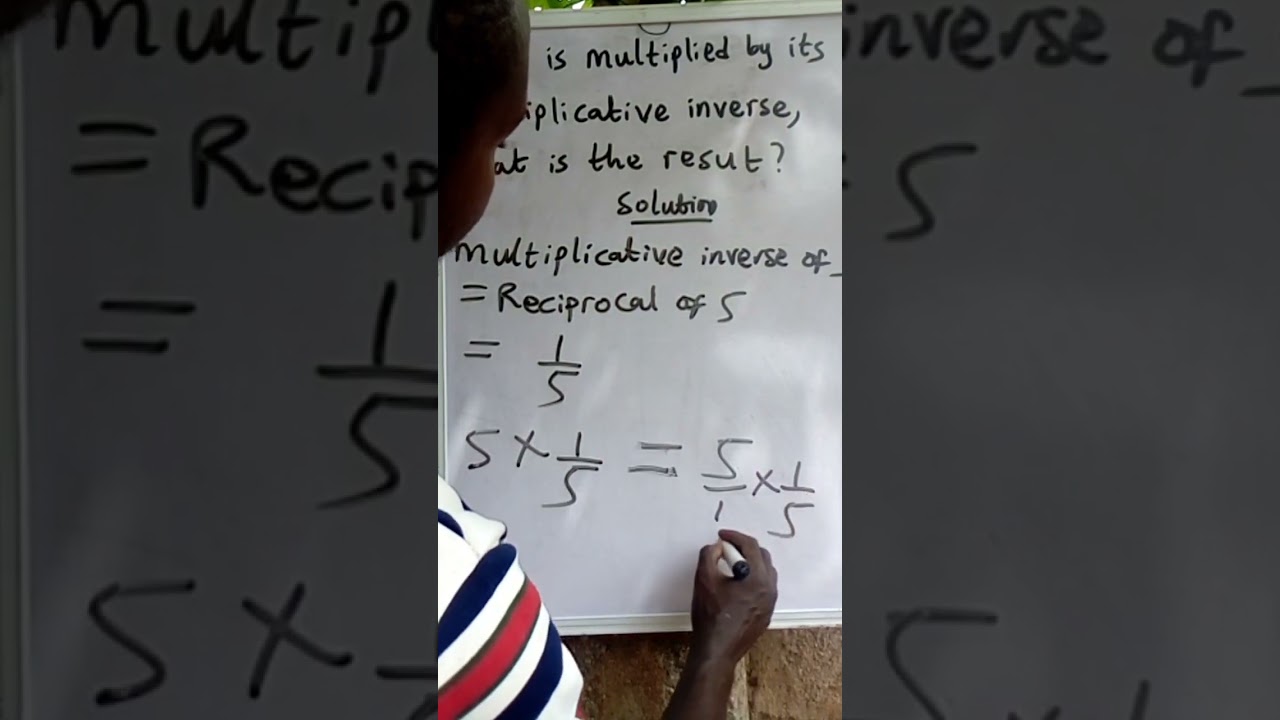 is multiplied by its
iplicative inverse,
at is the resut?
Solution
Multiplicative inverse of
= Reciprocal of 5
= 1/5
5 × 1/5 = 5/1 × 1/5